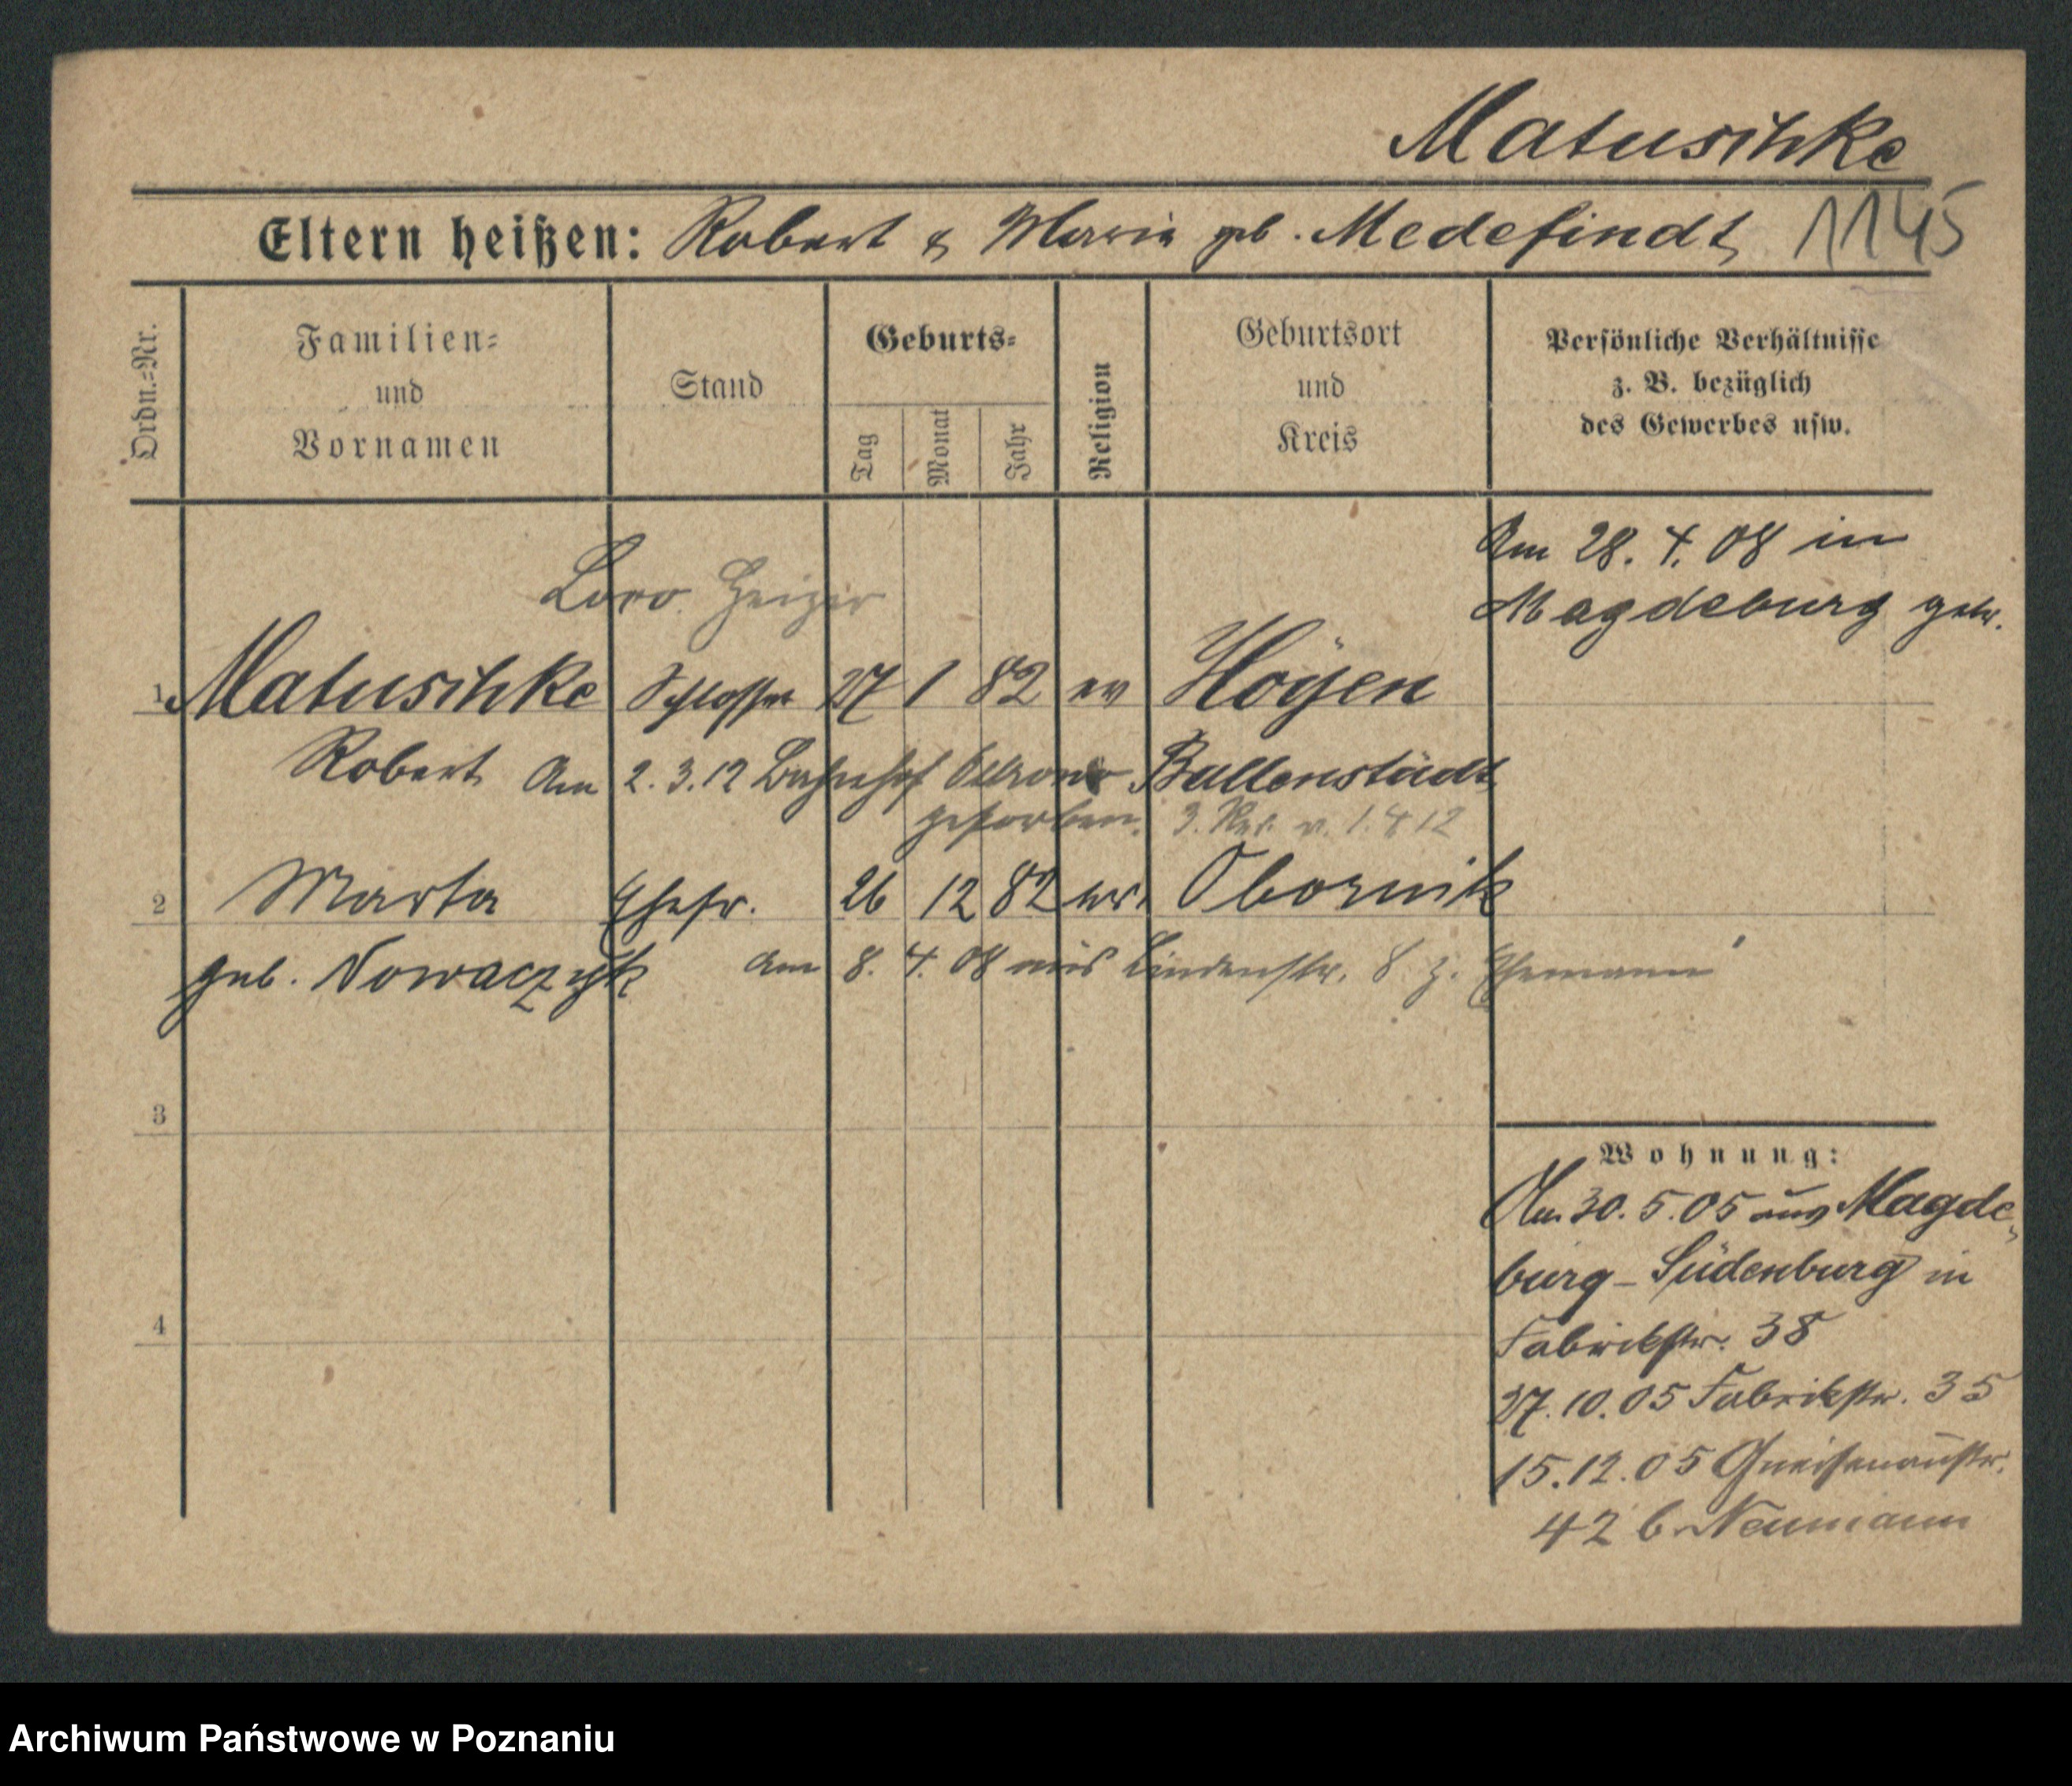 Matuschke
Eltern heißen: Robert & Marie geb. Medefindt 1145
Ordn.=Nr.
Familien=
und
Vornamen
Stand
Geburts=
Tag
Monat
Jahr
Religion
Geburtsort
und
Kreis
Persönliche Verhältnisse
z. B. bezüglich
des Gewerbes usw.
Am 28. 4. 08 in
Magdeburg getr.
Heizer
1 Matuschke Schlosser 27 1 82 ev Hoyen
Robert Am 2. 3. 12 Bahnhof Ballenstädt
gestorben. 1. 4 12
2 Marta Ehefr. 26 12 82 Obornik
geb. Nowaczyk am 8. 4. 08 aus Lindenstr. 8 z. Ehemann
3
4
Wohnung:
Am 30. 5. 05 aus Magde-
burg-Südenburg in
Fabrikstr. 38
27. 10. 05 Fabrikstr. 35
15. 12. 05 Gneisenaustr.
42 b. Neumann
Archiwum Państwowe w Poznaniu